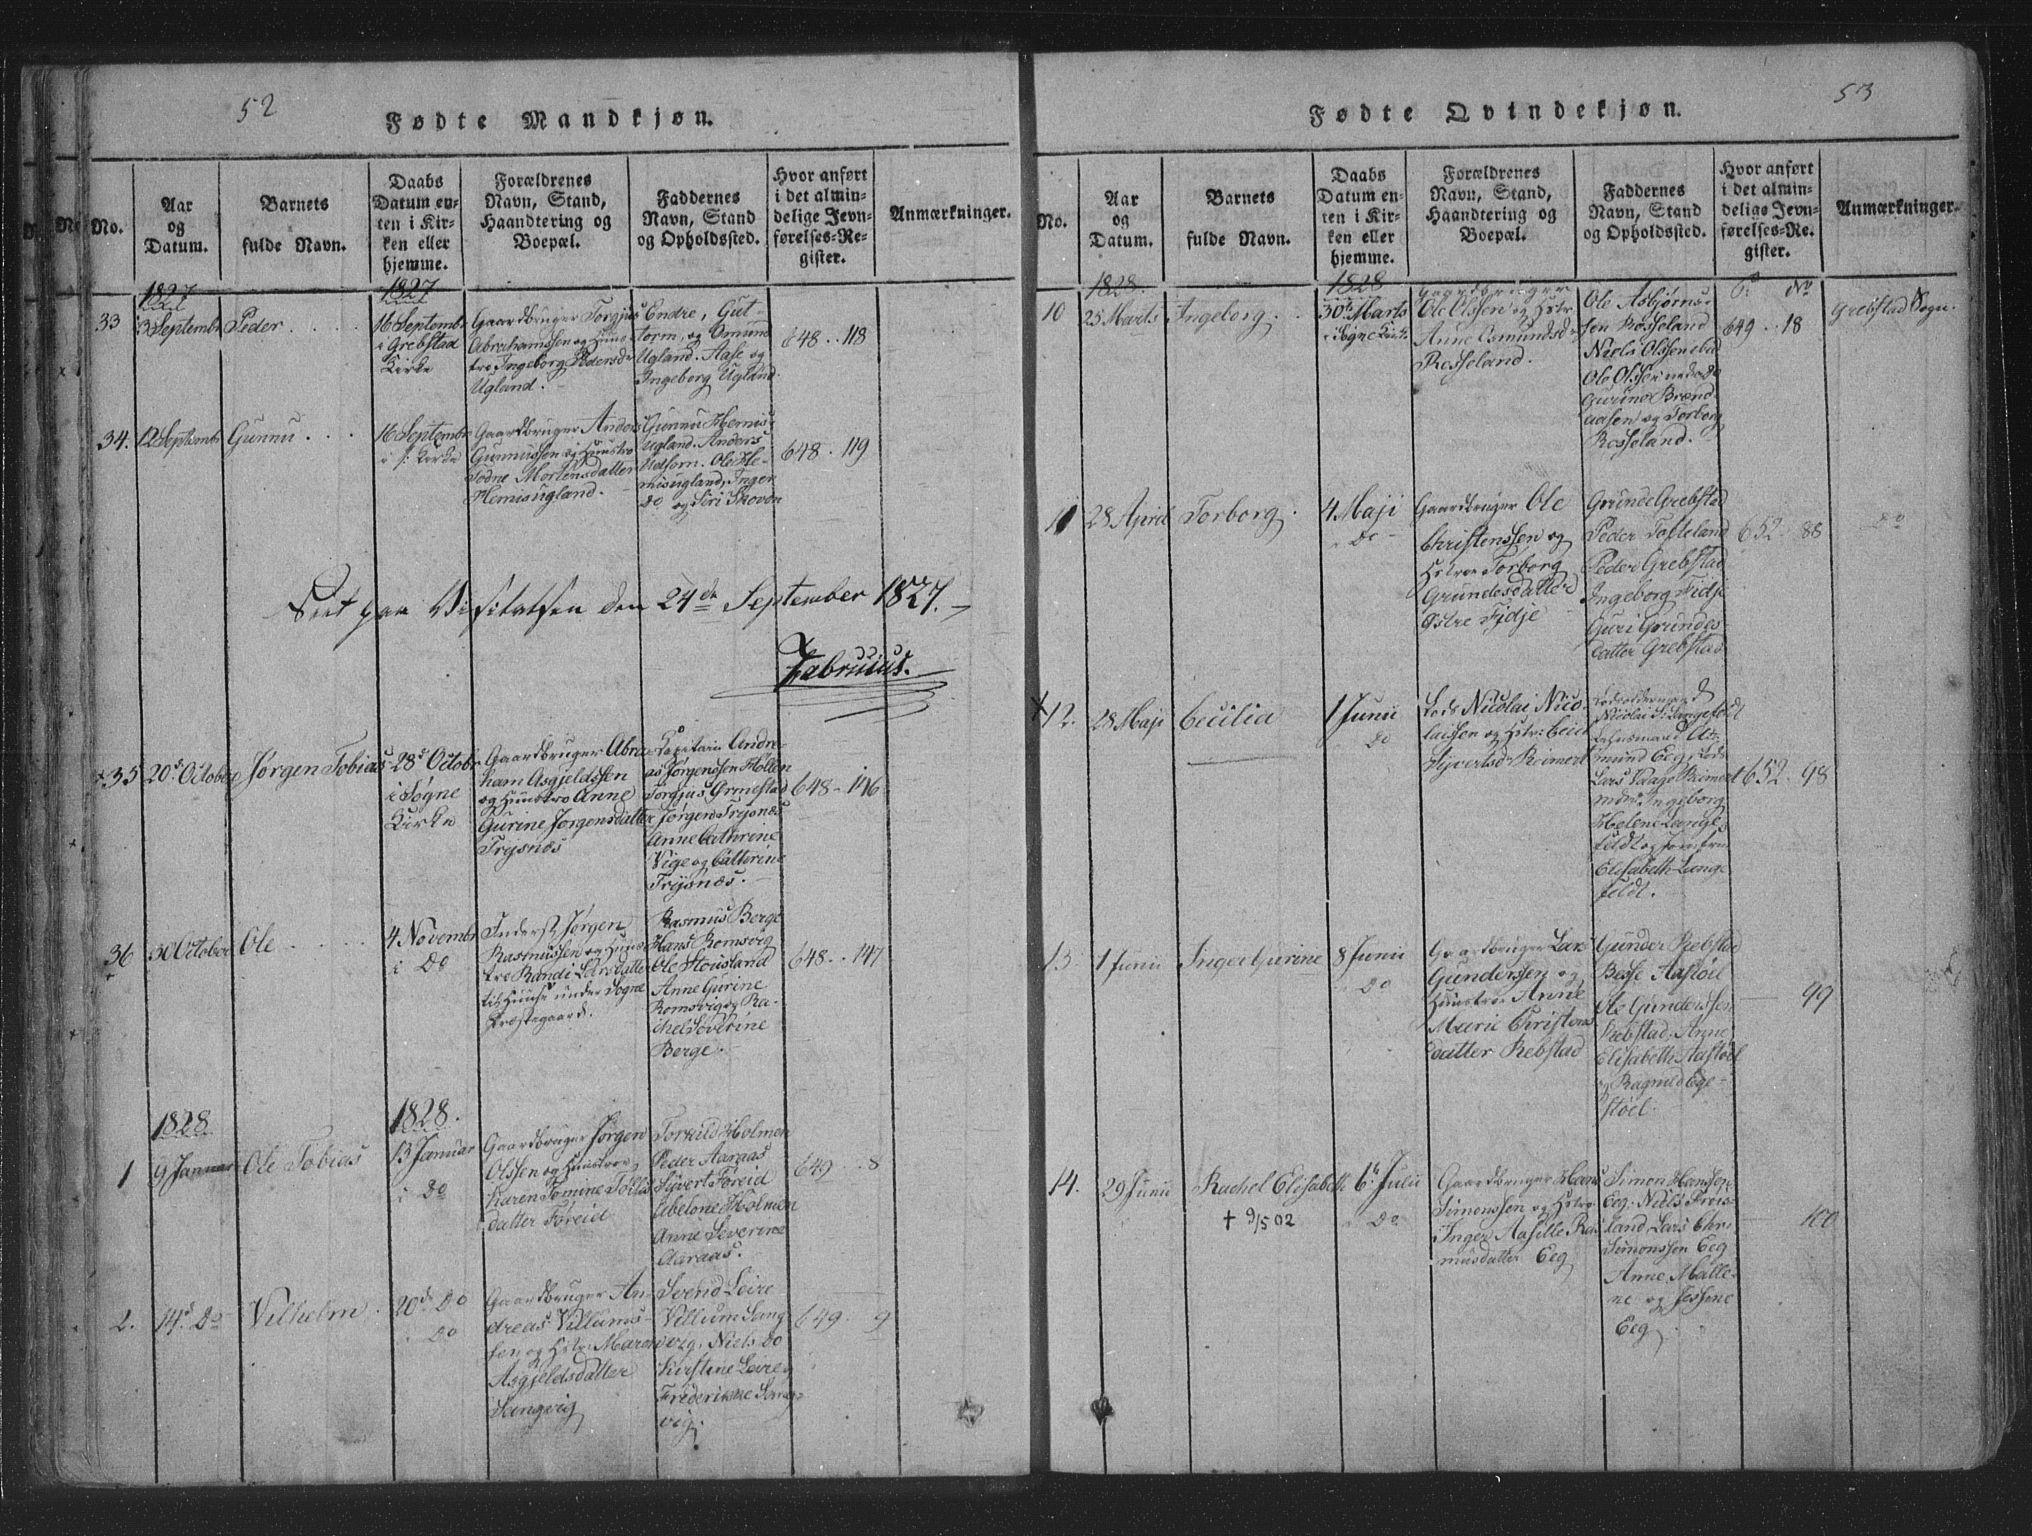 52
Fødte Mandkjøn.
No.
Aar
og
Datum.
Barnets
fulde Navn.
Daabs
Datum en-
ten i Kir-
ken eller
hjemme.
Forældrenes
Navn, Stand,
Haandtering og
Boepæl.
Faddernes
Navn, Stand
og Opholdssted.
Hvor anført
i det almin-
delige Jevn-
førelses-Re-
gister.
Anmærkninger.
1827
1827
33
3 Septembr
Peder
16 Septembr
i Grebstad
Kirke
Gaardbruger Torgjus
Abrahamssen og Huus-
tro Ingeborg Pedersd
Ugland.
Endre, Gut-
torm, og Omund
Ugland. Aase og
Ingeborg Ugland
648 .. 118
34.
12 Septembr
Gunnu
16 Septembr
i s. Kirke
Gaardbruger Anders
Gunnussen og Huustro
Todne Mortensdatter
Hemisugland.
Gunnu Hemis-
Ugland. Anders
Udsorn. Ole He-
misugland, Inger
Do og Siri Skoven
648 . 119
Seet paa Visitatsen den 24de September 1827.
Fabricius.
35
20d October
Jørgen Tobias
28d Octobr
i Søgne
Kirke
Gaardbruger Abra-
ham Asgjeldssen
og Huustro Anne
Gurine Jørgensdatter
Trysnes
Capitain Andre-
as Jørgenssen Hollen
Torgjus Ormestad
Jørgen Trysnes
Anne Cathrine
Vige og Cathrine
Trysnæs.
648 - 146
36
30 October
Ole
4 Novembr
i Do
Inderst Jørgen
Rasmussen og Huus-
tro Randi Larsdatter
til Huuse under Søgne
Præstegaard.
Rasmus Berge
Hans Romsvig
Ole Stousland
Anne Gurine
Romsvig og Ra-
chel Severine
Berge.
648 .. 147
1828
1828.
1
9 Januar
Ole Tobias
13 Januar
i Do
Gaardbruger Jørgen
Olssen og Huustroe
Karen Tomine Tollas
datter Føreid
Torkild Holmen
Peder Aaraas
Syvert Føreid
Abelone Holmen
Anne Severine
Aaraas.
649 .. 8
2.
14d Do
Vilhelm
20d Do
Do
Gaardbruger An-
dreas Villums-
sen og Hstr: Maren
Asgjeldsdatter
Langvig
Svend Leire
Villum Lang-
vig, Niels Do
Kirstine Leire og
Friderikke Lang-
vig.
649 . 9
53
Fødte Qvindekjøn.
No.
Aar
og
Datum.
Barnets
fulde Navn.
Daabs
Datum en-
ten i Kir-
ken eller
hjemme.
Forældrenes
Navn, Stand,
Haandtering og
Boepæl.
Faddernes
Navn, Stand
og Opholdssted.
Hvor anført
i det almin-
delige Jevn-
førelses-Re-
gister.
Anmærkninger.
1828
1828
10
25 Marts
Ingeborg
30te Marts
i Søgne Kirke
Gaardbruger
Ole Olssen og Hstr
Anne Osmundsd
Rosseland.
Ole Asbjørns-
sen Rosseland
Niels Olssen ibid
Ole Olssen nedade
Gurine Brænd-
aasen og Torborg
Rosseland.
649 . 18
Grebstad Sogn.
11
28 April
Torborg
4 Maji
Do
Gaardbruger Ole
Christenssen og
Hstroe Torborg
Grundesdatter
Østre Fidje
Grunde Grebstad
Peder Tofteland
Peder Grebstad
Ingeborg Fidje
Guri Grundes
datter Grebstad
652 . 88
Do
12.
28 Maji
Cecilia
1 Junii
Do
Lods Nicolai Nico-
laisen og Hstr: Cecil
Syvertsd Reimert
Lodsoldermand
Nicolai S. Langefeldt
Lehnsmand As-
mund Eeg, Lods
Lars Vaage Reimert
Ingeborg
Helene Lange-
feldt og Jomfrue
Elisabeth Lange-
feldt.
652 . 98
13.
1 Junii
Inger Gurine
8 Junii
Do
Gaardbruger Lars
Gunderssen og
Huustroe Anne
Marie Christens
datter Rebstad
Gunder Rebstad
Besse Aastøel
Ole Gunderssen
Rebstad, Anne
Elisabeth Aastøel
og Ragnild Ege-
støel.
99
14.
29 Junii
Rachel Elisabeth
† 9/5 02
6te Julii
Do
Gaardbruger Hans
Simonssen og Hstroe
Inger Aasille Ras-
musdatter Eeg
Simon Hanssen
Eeg. Niels Frøis-
land Lars Chr:
Simonssen Eeg
Anne Malle-
ne og Jessine
Eeg
100